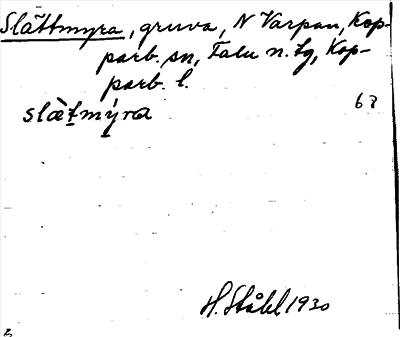 Slättmyra, gruva, N Varpan, Kop-
parb. sn, Falu n. tg, Kop-
parb. l.
slättmýra
67
H. Ståhl 1930